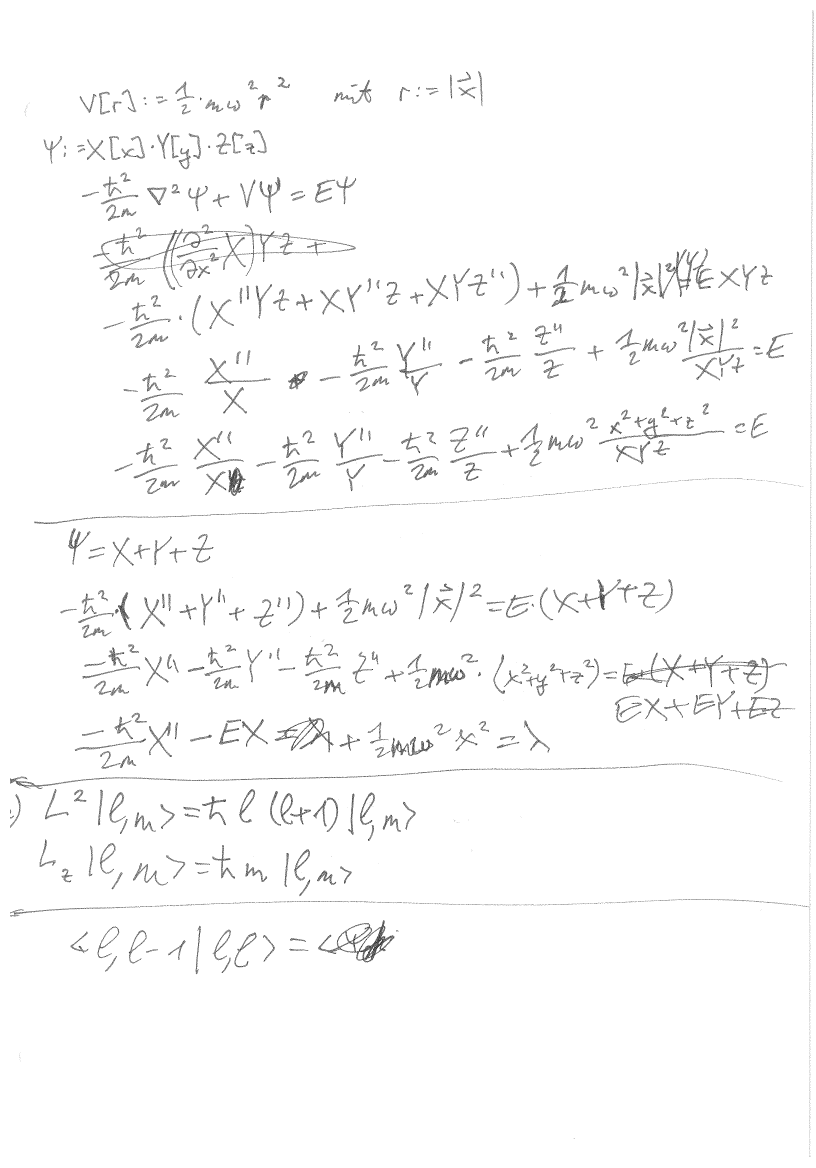 V[r] := 1/2 · mω² r² mit r := |x⃗|
Ψ := X[x] · Y[y] · Z[z]
-ħ²/2m ∇²Ψ + VΨ = EΨ
-ħ²/2m ((∂²/∂x² X)YZ +
-ħ²/2m · (X''YZ + XY''Z + XYZ'') + 1/2 mω²|x⃗|² = E XYZ
-ħ²/2m X''/X - ħ²/2m Y''/Y - ħ²/2m Z''/Z + 1/2 mω² |x⃗|²/XYZ = E
-ħ²/2m X''/X - ħ²/2m Y''/Y - ħ²/2m Z''/Z + 1/2 mω² (x²+y²+z²)/XYZ = E
Ψ = X+Y+Z
-ħ²/2m · (X'' + Y'' + Z'') + 1/2 mω² |x⃗|² = E · (X+Y+Z)
-ħ²/2m X'' - ħ²/2m Y'' - ħ²/2m Z'' + 1/2 mω² · (x²+y²+z²) = E · (X+Y+Z)
EX+EY+EZ
-ħ²/2m X'' - EX + 1/2 mω² x² = λ
) L² |ℓ,m> = ħ ℓ (ℓ+1) |ℓ,m>
L_z |ℓ,m> = ħ m |ℓ,m>
<ℓ,ℓ-1|ℓ,ℓ> = <